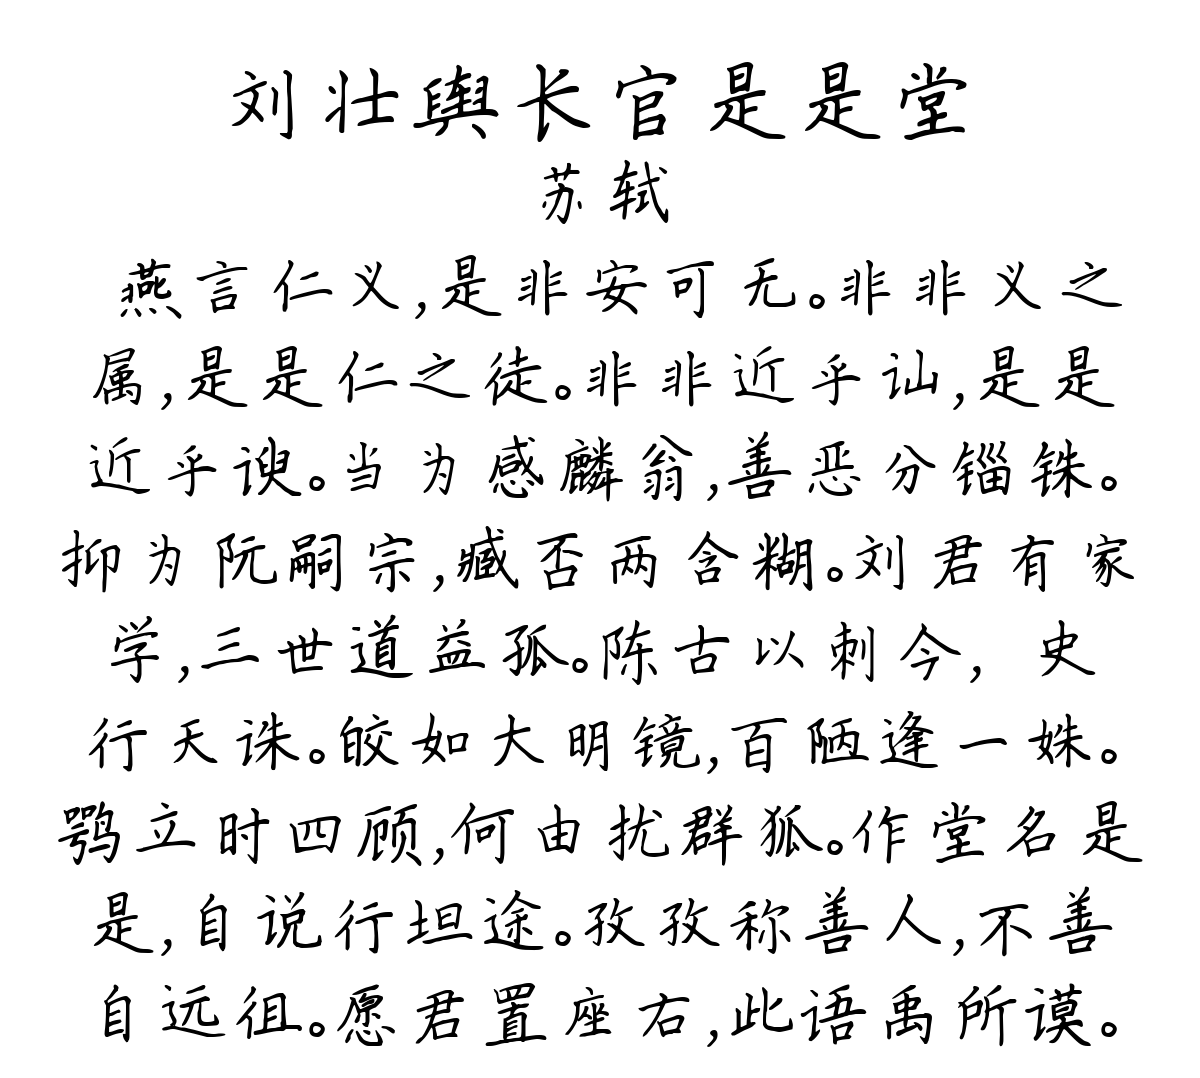 刘壮舆长官是是堂
苏轼
燕言仁义,是非安可无。非非义之
属,是是仁之徒。非非近乎讪,是是
近乎谀。当为感麟翁,善恶分锱铢。
抑为阮嗣宗,臧否两含糊。刘君有家
学,三世道益孤。陈古以刺今, 史
行天诛。皎如大明镜,百陋逢一姝。
鹗立时四顾,何由扰群狐。作堂名是
是,自说行坦途。孜孜称善人,不善
自远徂。愿君置座右,此语禹所谟。